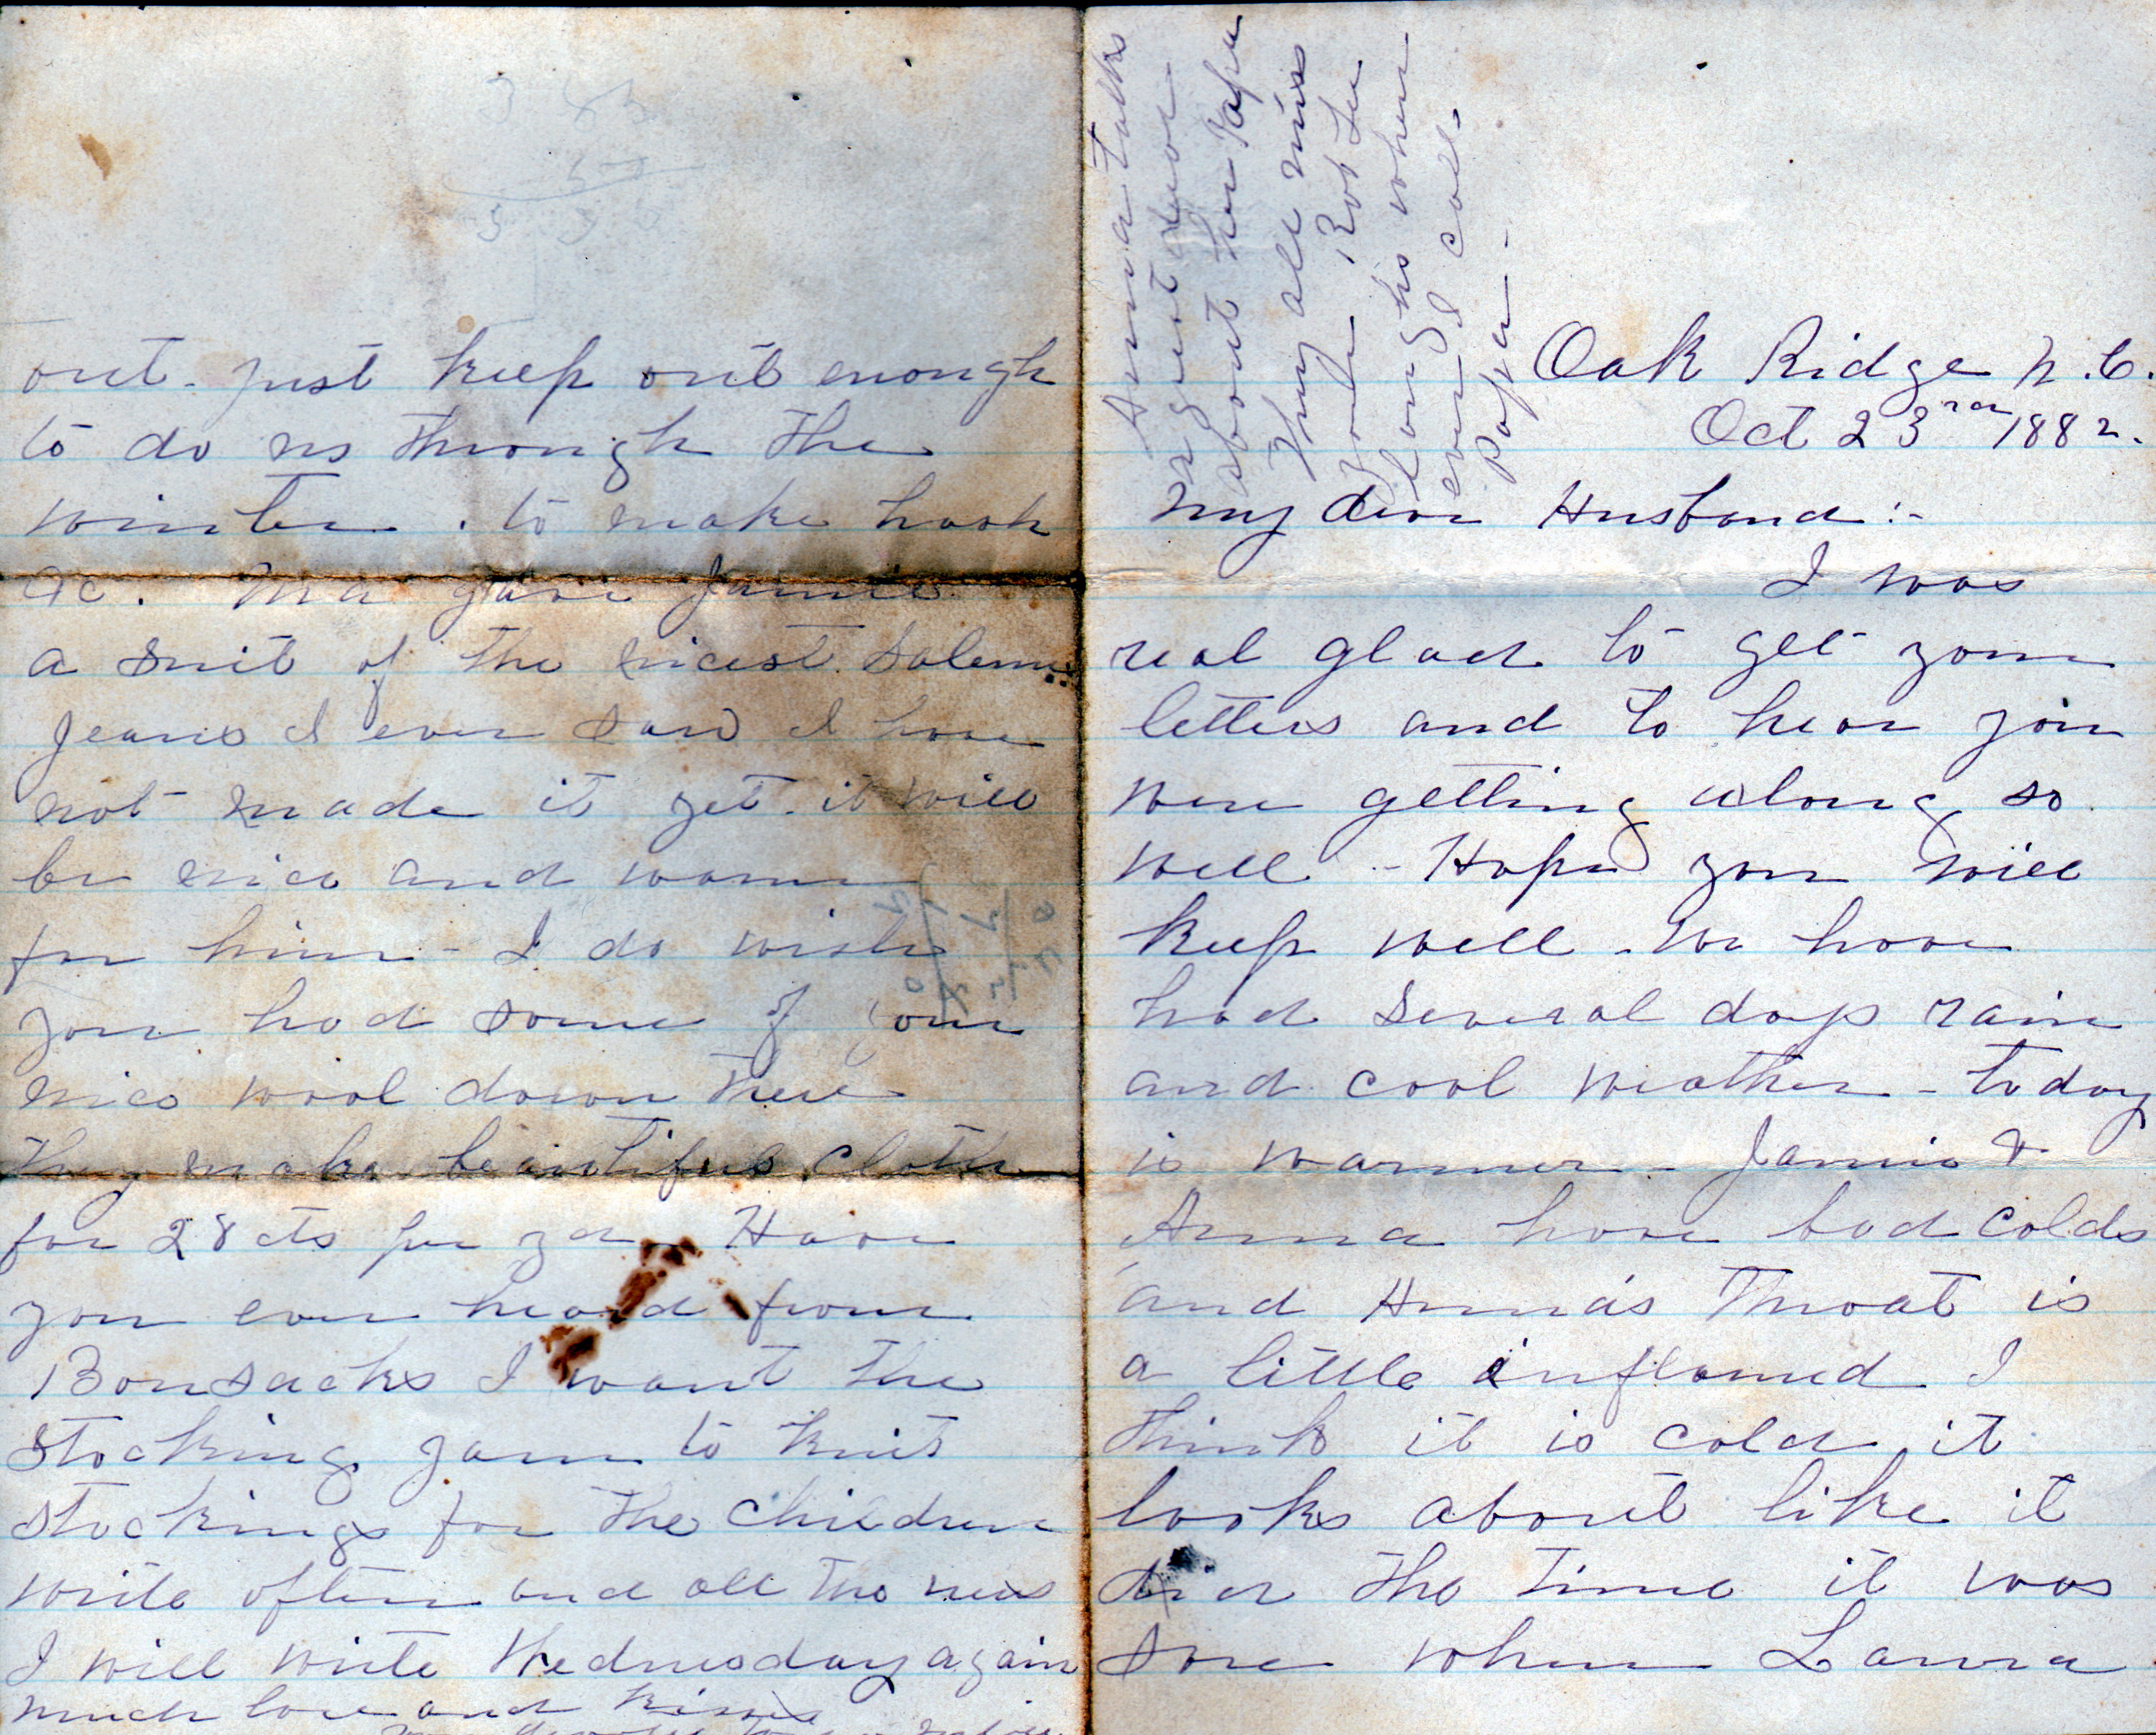 Oak Ridge N.C.
Oct 23rd 1882.
My dear Husband :-
I was
real glad to get your
letters and to hear you
were getting along so
well - Hope you will
keep well - We have
had several days rain
and cool weather - today
is warmer - Jamie &
Anna have bad colds
and Anna's throat is
a little inflamed I
think it is cold, it
looks about like it
did the time it was
sore when Laura
Anna talks
a great deal
about her Papa
They all miss
you Rob Lee
laughs when
ever I call
Papa -
out - just keep out enough
to do us through the
winter . to make hash
&c. Ma gave Jamie
a suit of the nicest Salem
Jeans I ever saw I have
not made it yet - it will
be nice and warm
for him - I do wish
you had some of your
nice wool down there
They make beautiful cloth
for 28 cts per yd - Have
you ever heard from
Bonsacks I want the
stocking yarn to knit
stockings for the children
write often and all the news
I will write Wednesday again
much love and kisses
your devoted